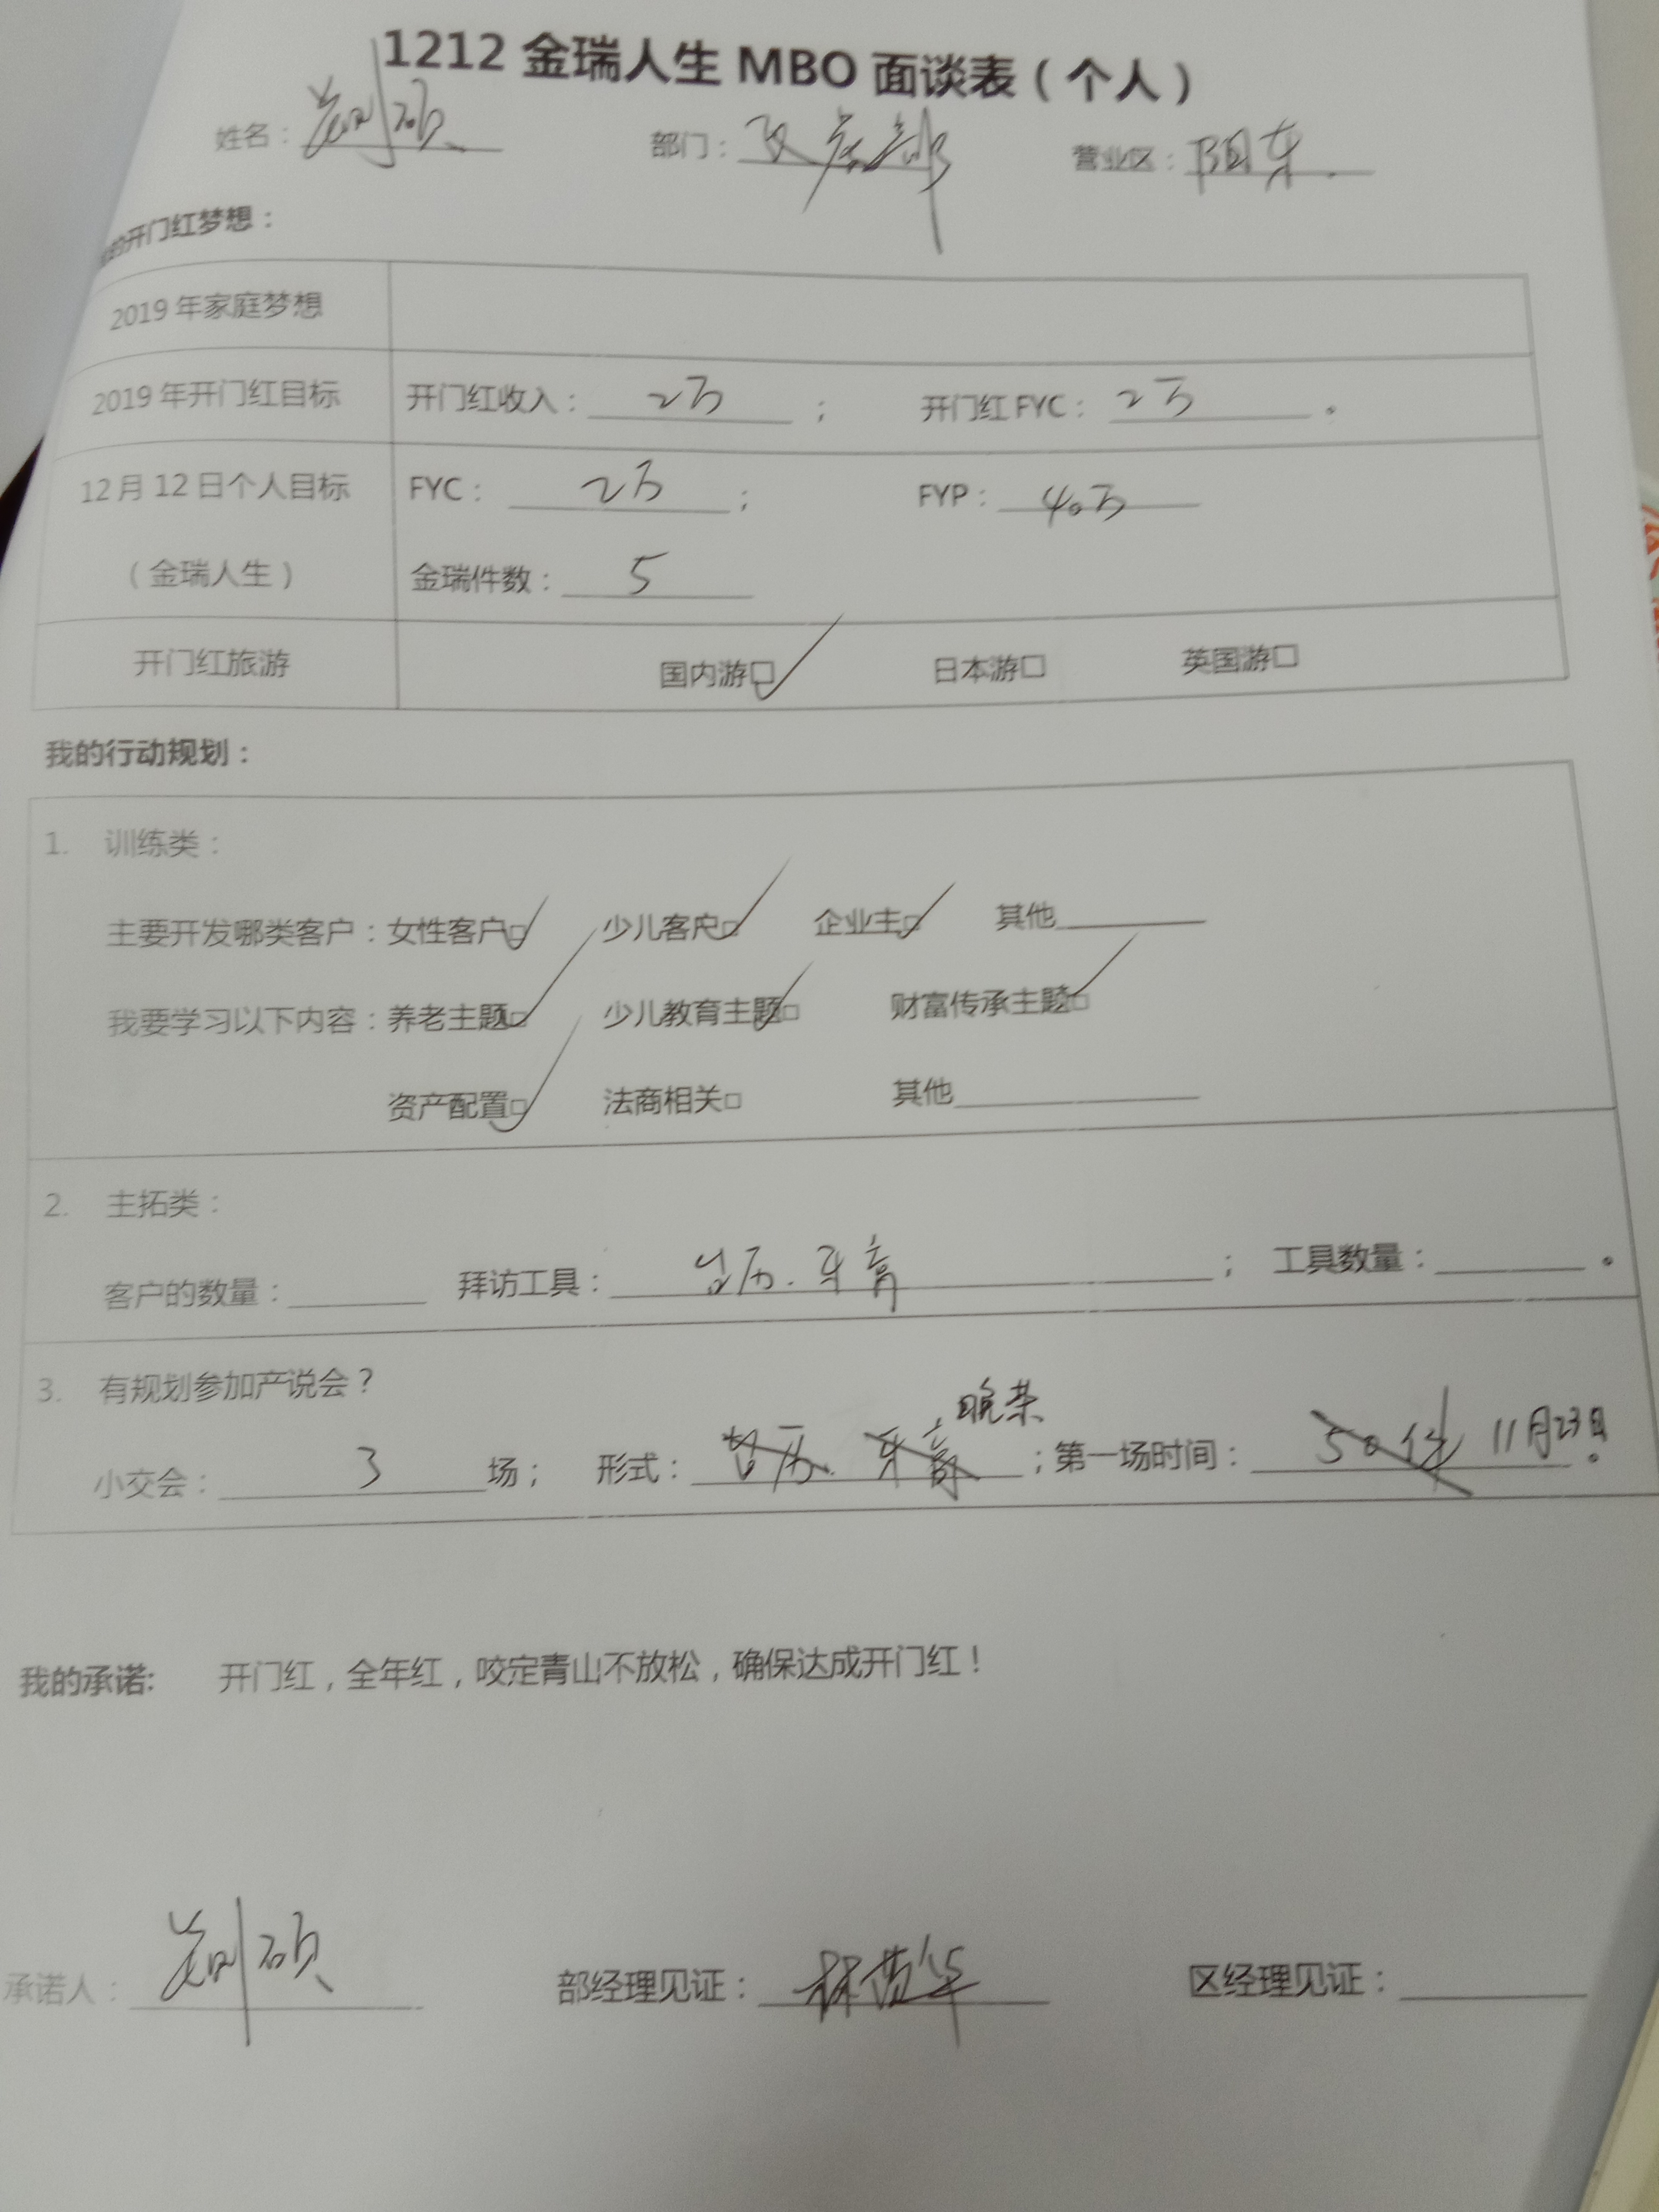 1212 金瑞人生 MBO 面谈表（个人）
姓名： 部门： 营业区：阳东
的开门红梦想：
2019 年家庭梦想
2019 年开门红目标 开门红收入：2万； 开门红 FYC：2万。
12 月 12 日个人目标 FYC：2万； FYP：40万
（金瑞人生） 金瑞件数：5
开门红旅游 国内游☑ 日本游□ 英国游□
我的行动规划：
1. 训练类：
主要开发哪类客户：女性客户☑ 少儿客户☑ 企业主☑ 其他
我要学习以下内容：养老主题☑ 少儿教育主题☑ 财富传承主题☑
资产配置☑ 法商相关□ 其他
2. 主拓类：
客户的数量： 拜访工具：台历.牙膏； 工具数量： 。
3. 有规划参加产说会？
小交会：3场； 形式：台历.牙膏 ；第一场时间：50件 11月23日。
我的承诺: 开门红，全年红，咬定青山不放松，确保达成开门红！
承诺人： 部经理见证： 区经理见证：